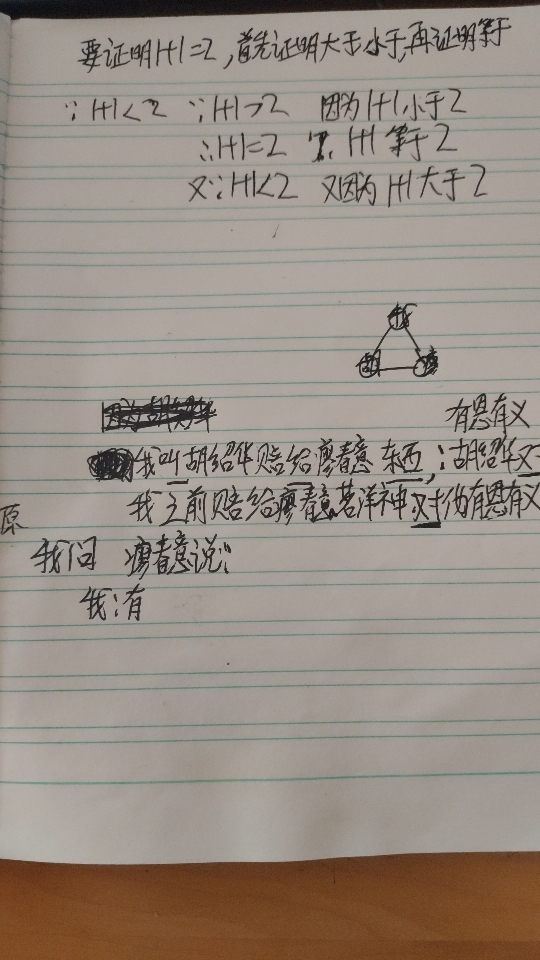 要证明1+1=2,首先证明大于,小于,再证明等于
∵1+1<2 ∵1+1>2 因为1+1小于2
∴1+1=2 ∴1+1等于2
又∵1+1<2 又因为1+1大于2
我
胡 廖
有恩有义
我叫胡绍华赔给廖春意东西,∴胡绍华对
我之前赔给廖春意 洋神对 有恩有义
原
我问 廖春意说:
我:有